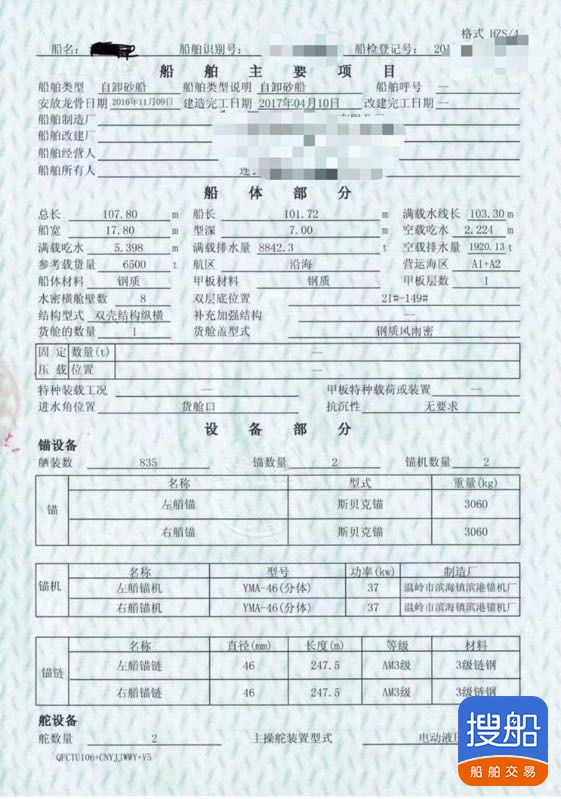 格式 HZS/4
船名： 船舶识别号： 船检登记号：
船 舶 主 要 项 目
船舶类型 自卸砂船 船舶类型说明 自卸砂船 船舶呼号 —
安放龙骨日期 2016年11月09日 建造完工日期 2017年04月10日 改建完工日期 —
船舶制造厂
船舶改建厂
船舶经营人
船舶所有人
船 体 部 分
总长 107.80 m 船长 101.72 m 满载水线长 103.30 m
船宽 17.80 m 型深 7.00 m 空载吃水 2.224 m
满载吃水 5.398 m 满载排水量 8842.3 t 空载排水量 1920.13 t
参考载货量 6500 t 航区 沿海 营运海区 A1+A2
船体材料 钢质 甲板材料 钢质 甲板层数 1
水密横舱壁数 8 双层底位置 2I#-149#
结构型式 双壳结构纵横 补充加强结构 —
货舱的数量 1 货舱盖型式 钢质风雨密
固 定 数量(t) —
压 载 位置 —
特种装载工况 — 甲板特种载荷或装置 —
进水角位置 货舱口 抗沉性 无要求
设 备 部 分
锚设备
舾装数 835 锚数量 2 锚机数量 2
名称 型式 重量(kg)
锚 左艏锚 斯贝克锚 3060
右艏锚 斯贝克锚 3060
名称 型号 功率(kw) 制造厂
锚机 左艏锚机 YMA-46(分体) 37 温岭市滨海镇滨港锚机厂
右艏锚机 YMA-46(分体) 37 温岭市滨海镇滨港锚机厂
名称 直径(mm) 长度(m) 等级 材料
锚链 左艏锚链 46 247.5 AM3级 3级链钢
右艏锚链 46 247.5 AM3级 3级链钢
舵设备
舵数量 2 主操舵装置型式 电动液
QFCTU106+CNYJJWWY+V5
搜船
船舶交易